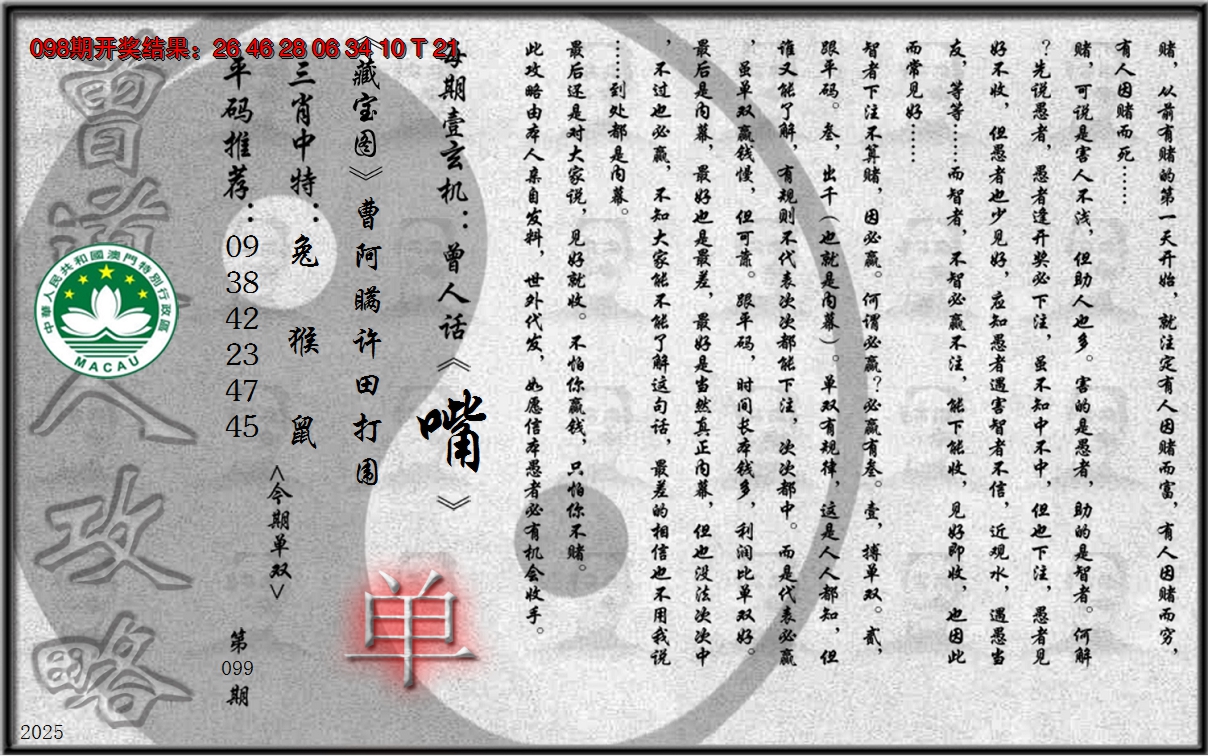 098期开奖结果：26 46 28 06 34 10 T 21
赌，从前有赌的第一天开始，就注定有人因赌而富，有人因赌而穷，
有人因赌而死……
赌，可说是害人不浅，但助人也多。害的是愚者，助的是智者。何解
？先说愚者，愚者逢开奖必下注，虽不知中不中，但也下注，愚者见
好不收，但愚者也少见好，应知愚者遇害智者不信，近观水，遇愚当
友，等等……而智者，不智必赢不注，能下能收，见好即收，也因此
而常见好……
智者下注不算赌，因必赢。何谓必赢？必赢有叁。壹，搏单双。贰，
跟平码。叁，出千（也就是内幕）。单双有规律，这是人人都知，但
谁又能了解，有规则不代表次次都能下注，次次都中。而是代表必赢
，虽单双赢钱慢，但可靠。跟平码，时间长本钱多，利润比单双好。
最后是内幕，最好也是最差，最好是当然真正内幕，但也没法次次中
，不过也必赢，不知大家能不能了解这句话，最差的相信也不用我说
……到处都是内幕。
最后还是对大家说，见好就收。不怕你赢钱，只怕你不赌。
此攻略由本人亲自发料，世外代发，如愿信本愚者必有机会收手。
每期壹玄机：曾人话《嘴》
《藏宝图》曹阿瞒许田打围
单
三肖中特：兔 猴 鼠
<今期单双>
平码推荐：
09
38
42
23
47
45
第
099
期
曾道人攻略
中華人民共和國澳門特別行政區
MACAU
2025